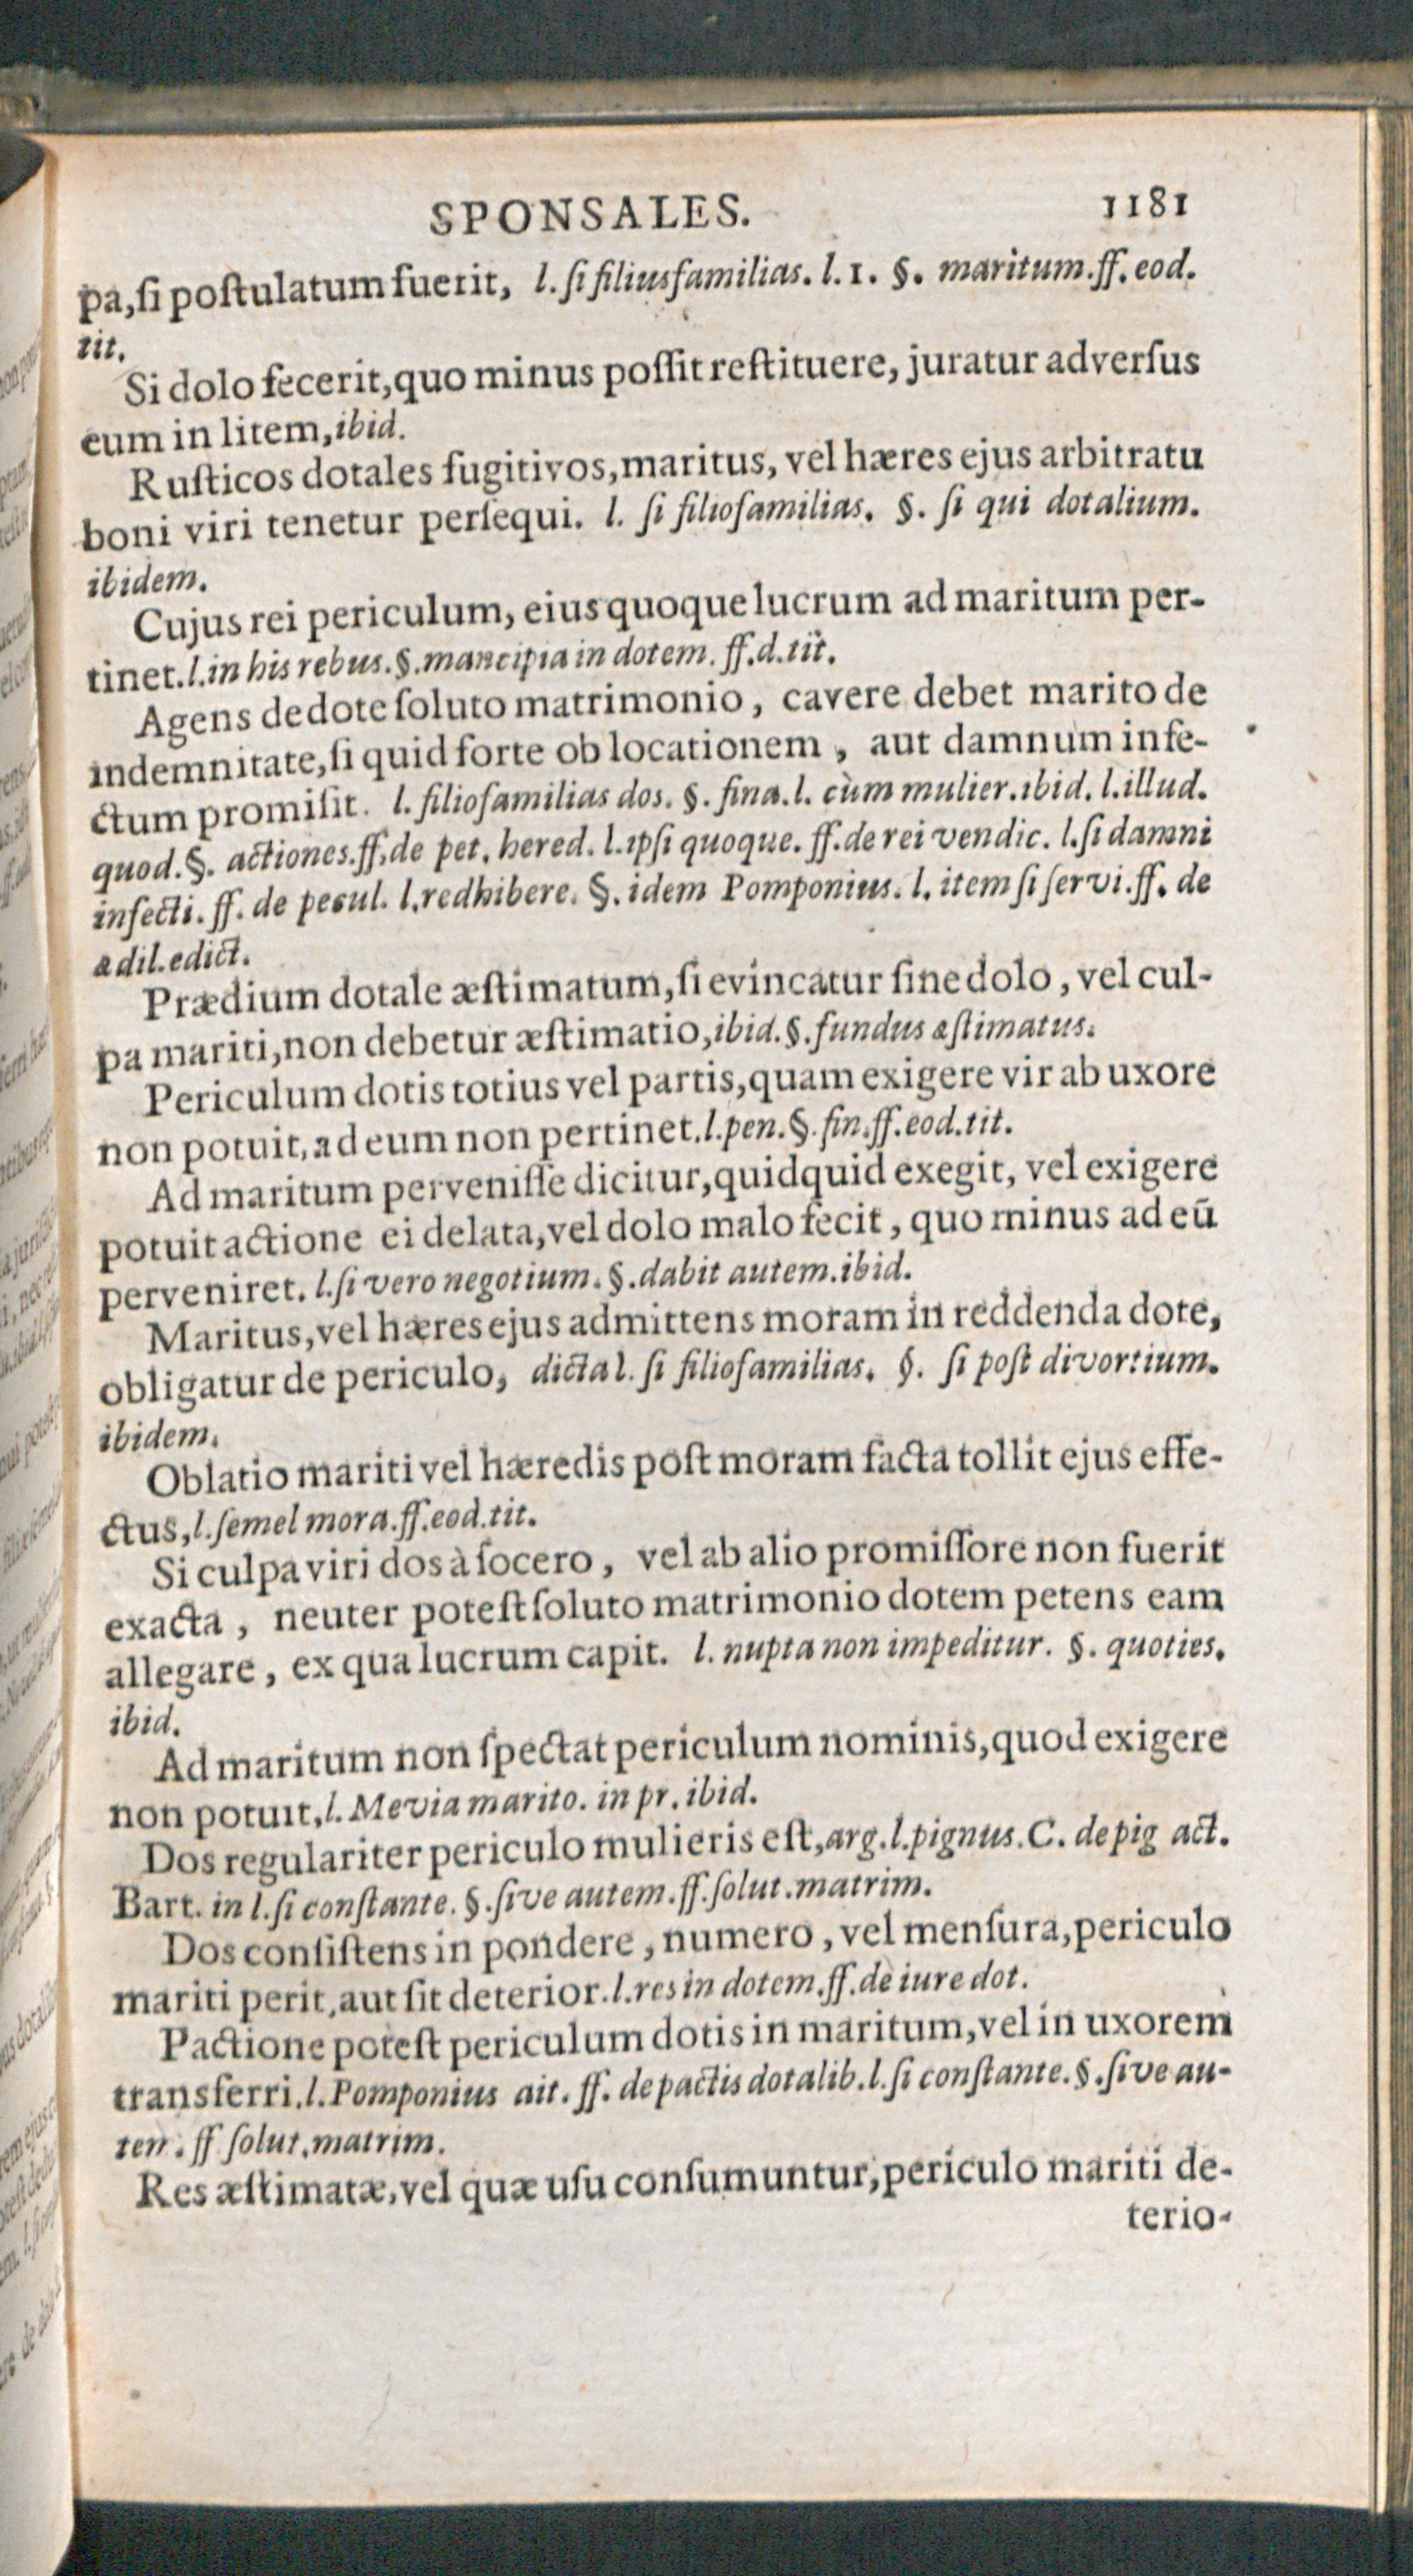 SPONSALES. 1181
pa,ſi poſtulatum fuerit, l. ſi filiusfamilias. l. 1. §. maritum.ff. eod.
tit.
Si dolo fecerit,quo minus poſſit reſtituere, juratur adverſus
eum in litem,ibid.
Ruſticos dotales fugitivos,maritus, vel hæres ejus arbitratu
boni viri tenetur perſequi. l. ſi filiofamilias. §. ſi qui dotalium.
ibidem.
Cujus rei periculum, eius quoque lucrum ad maritum per-
tinet.l.in his rebus.§.mancipia in dotem. ff.d.tit.
Agens de dote ſoluto matrimonio, cavere debet marito de
indemnitate,ſi quid forte ob locationem, aut damnum infe-
ctum promiſit. l. filiofamilias dos. §. fina.l. cùm mulier.ibid. l.illud.
quod.§. actiones.ff.de pet. hered. l.ipſi quoque. ff.de rei vendic. l.ſi damni
infecti. ff. de pecul. l.redhibere. §. idem Pomponius. l. item ſi ſervi.ff. de
ædil.edict.
Prædium dotale æſtimatum,ſi evincatur ſine dolo, vel cul-
pa mariti,non debetur æſtimatio,ibid.§.fundus æſtimatus.
Periculum dotis totius vel partis,quam exigere vir ab uxore
non potuit,ad eum non pertinet.l.pen.§.fin.ff.eod.tit.
Ad maritum perveniſſe dicitur,quidquid exegit, vel exigere
potuit actione ei delata,vel dolo malo fecit, quo minus ad eū
perveniret. l.ſi vero negotium.§.dabit autem.ibid.
Maritus,vel hæres ejus admittens moram in reddenda dote,
obligatur de periculo, dicta l. ſi filiofamilias. §. ſi poſt divortium.
ibidem.
Oblatio mariti vel hæredis poſt moram facta tollit ejus effe-
ctus,l.ſemel mora.ff.eod.tit.
Si culpa viri dos à ſocero, vel ab alio promiſſore non fuerit
exacta, neuter poteſt ſoluto matrimonio dotem petens eam
allegare, ex qua lucrum capit. l. nupta non impeditur. §. quoties.
ibid.
Ad maritum non ſpectat periculum nominis,quod exigere
non potuit,l. Mevia marito. in pr. ibid.
Dos regulariter periculo mulieris eſt,arg.l.pignus.C. de pig act.
Bart. in l.ſi conſtante.§.ſive autem.ff.ſolut.matrim.
Dos conſiſtens in pondere, numero, vel menſura,periculo
mariti perit,aut fit deterior.l.res in dotem.ff.de iure dot.
Pactione poteſt periculum dotis in maritum,vel in uxorem
transferri.l.Pomponius ait. ff. de pactis dotalib.l.ſi conſtante.§.ſive au-
tem. ff ſolut.matrim.
Res æſtimatæ,vel quæ uſu conſumuntur,periculo mariti de-
terio-